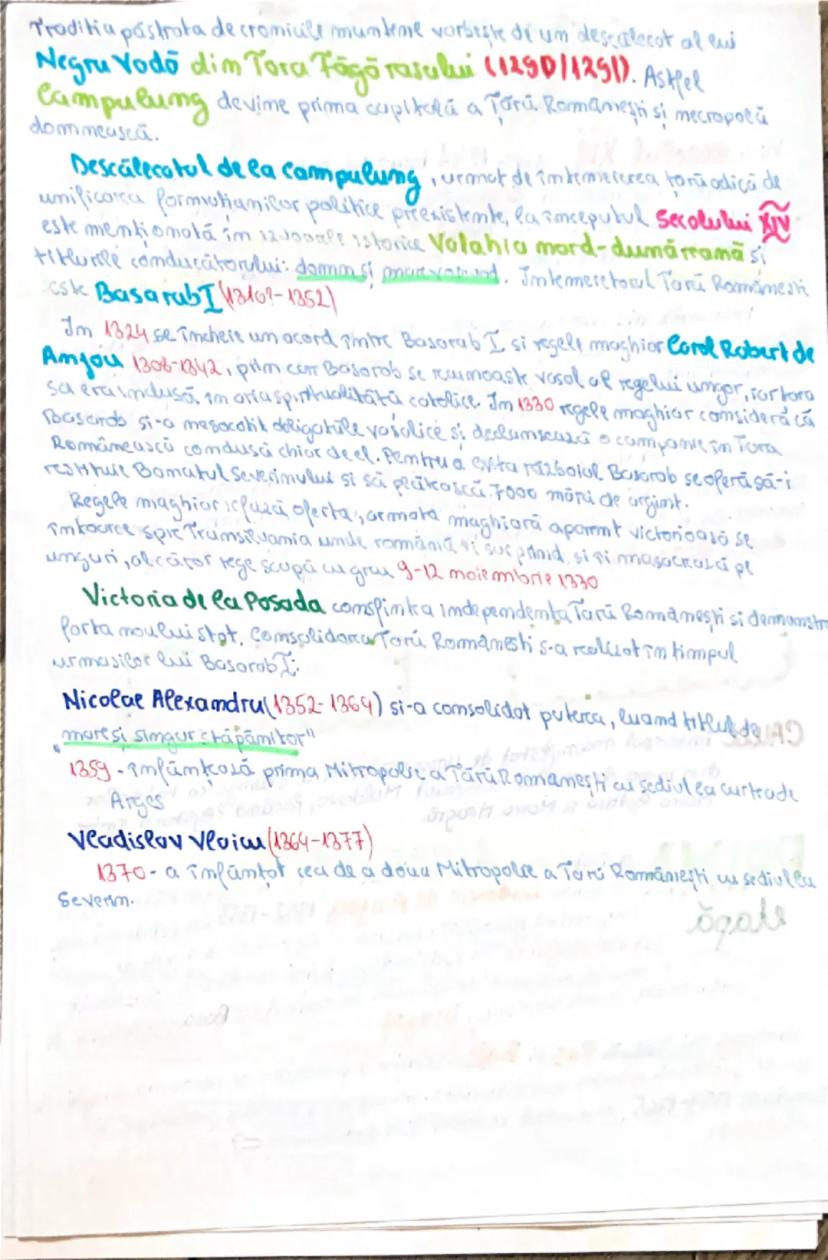 Traditia păstrata de cronicile muntene vorbește de un descălecat al lui
Negru Vodă din Tara Făgărasului (1290/1291). Astfel
Campulung devine prima capitală a Țării Românești si necropolă
domnească.
Descălecatul de la Campulung, urmat de întemeierea țării adică de
unificarea formațiunilor politice preexistente, la începutul Secolului XIV
este menționată în izvoarele istorice Valahia nord-dunăreană si
titlurile conducătorului: domn si mare voievod. Intemeietorul Tarii Românesti
este Basarab I (1310?-1352)
In 1324 se încheie un acord între Basarab I si regele maghiar Carol Robert de
Anjou 1308-1342, prin care Basarab se recunoaste vasal al regelui ungar, iar tara
sa era indusă, in aria spiritualității catolice. In 1330 regele maghiar consideră că
Basarab si-a nesocotit obligatiile vasalice si declansează o campanie in Tara
Românească condusă chiar de el. Pentru a evita războiul Basarab se oferă să-i
restituie Banatul Severinului si să plătească 7000 mărci de argint.
Regele maghiar refuză oferta, armata maghiară aparent victorioasă se
intoarce spre Transilvania unde românii ii surprind, si ii masacrează pe
unguri, al cător rege scapă cu greu 9-12 noiembrie 1330
Victoria de la Posada consfinteă independenta Tarii Românesti si demonstr
forta noului stat. Consolidarea Tarii Românesti s-a realizat in timpul
urmasilor lui Basarab I:
Nicolae Alexandru (1352-1364) si-a consolidat puterea, luand titlul de
„mare și singur stăpânitor"
1359 - înființează prima Mitropolie a Tării Românești cu sediul la curtea de
Arges
Vladislav Vlaicu (1364-1377)
1370 - a înființat cea de a doua Mitropolie a Tării Românești cu sediul la
Severin.